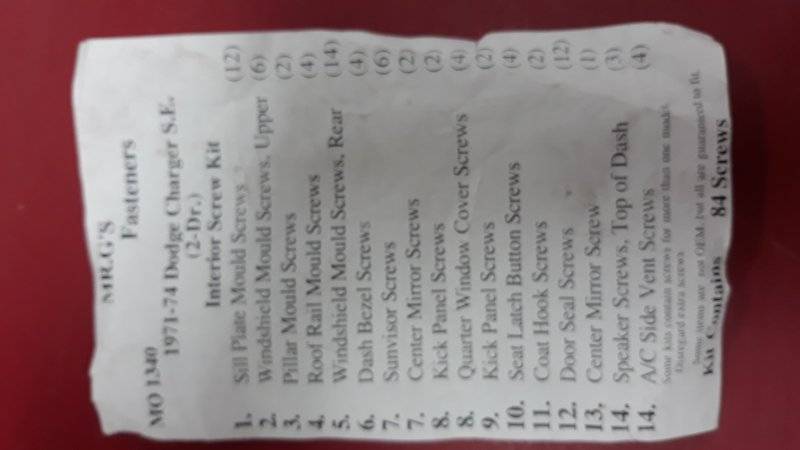 MR.G'S
Fasteners
MO 1340
1971-74 Dodge Charger S.E.
(2-Dr.)
Interior Screw Kit
1. Sill Plate Mould Screws (12)
2. Windshield Mould Screws, Upper (6)
3. Pillar Mould Screws (2)
4. Roof Rail Mould Screws (4)
5. Windshield Mould Screws, Rear (14)
6. Dash Bezel Screws (4)
7. Sunvisor Screws (6)
7. Center Mirror Screws (2)
8. Kick Panel Screws (2)
8. Quarter Window Cover Screws (4)
9. Kick Panel Screws (2)
10. Seat Latch Button Screws (4)
11. Coat Hook Screws (2)
12. Door Seal Screws (12)
13. Center Mirror Screw (1)
14. Speaker Screws, Top of Dash (3)
14. A/C Side Vent Screws (4)
Some kits contain screws for more than one model.
Disregard extra screws
Some items are not OEM, but all are guaranteed to fit.
Kit Contains 84 Screws